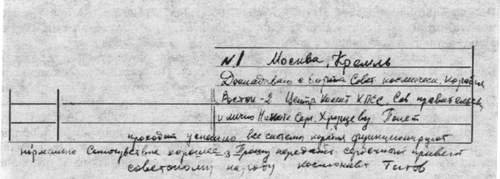 N.1 Москва, Кремль
Докладываю с борта Совет. космическ. корабля
Восток-2 Центр. Комит КПСС, Сов правительству
и лично Никите Серг. Хрущеву Полет
проходит успешно все системы корабля функционируют
нормально Самочувствие хорошее Прошу передать сердечный привет
советскому народу космонавт Титов